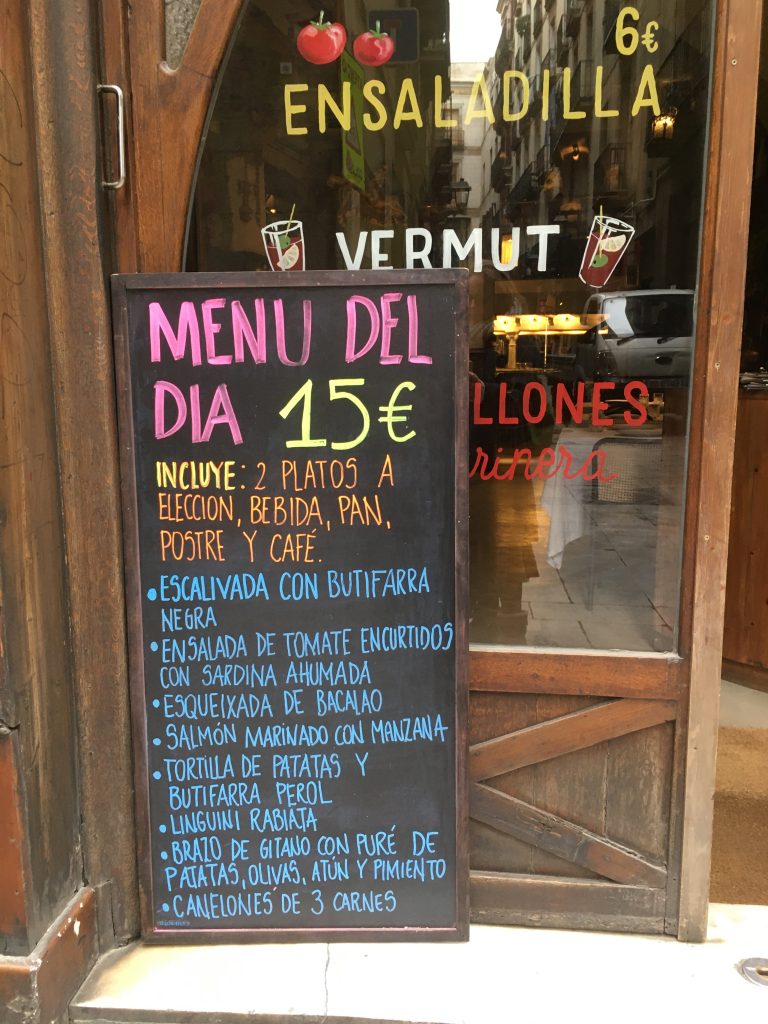 6€
ENSALADILLA
VERMUT
LLONES
rinera
MENU DEL
DIA 15€
INCLUYE: 2 PLATOS A
ELECCION, BEBIDA, PAN,
POSTRE Y CAFÉ.
• ESCALIVADA CON BUTIFARRA
NEGRA
• ENSALADA DE TOMATE ENCURTIDOS
CON SARDINA AHUMADA
• ESQUEIXADA DE BACALAO
• SALMÓN MARINADO CON MANZANA
• TORTILLA DE PATATAS Y
BUTIFARRA PEROL
• LINGUINI RABIATA
• BRAZO DE GITANO CON PURÉ DE
PATATAS, OLIVAS, ATÚN Y PIMIENTO
• CANELONES DE 3 CARNES